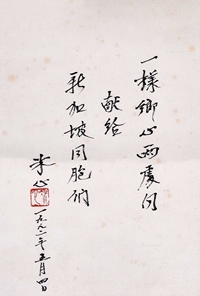 一樣鄉心兩處同
献给
新加坡同胞们
一九九二年五月四日